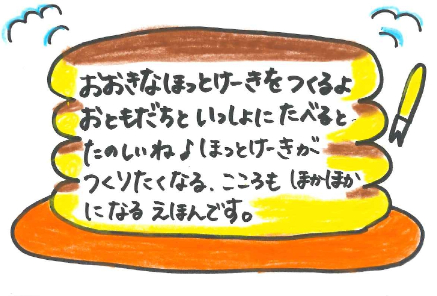 おおきなほっとけーきをつくるよ
おともだちといっしょにたべると、
たのしいね♪ほっとけーきが
つくりたくなる、こころもほかほか
になるえほんです。